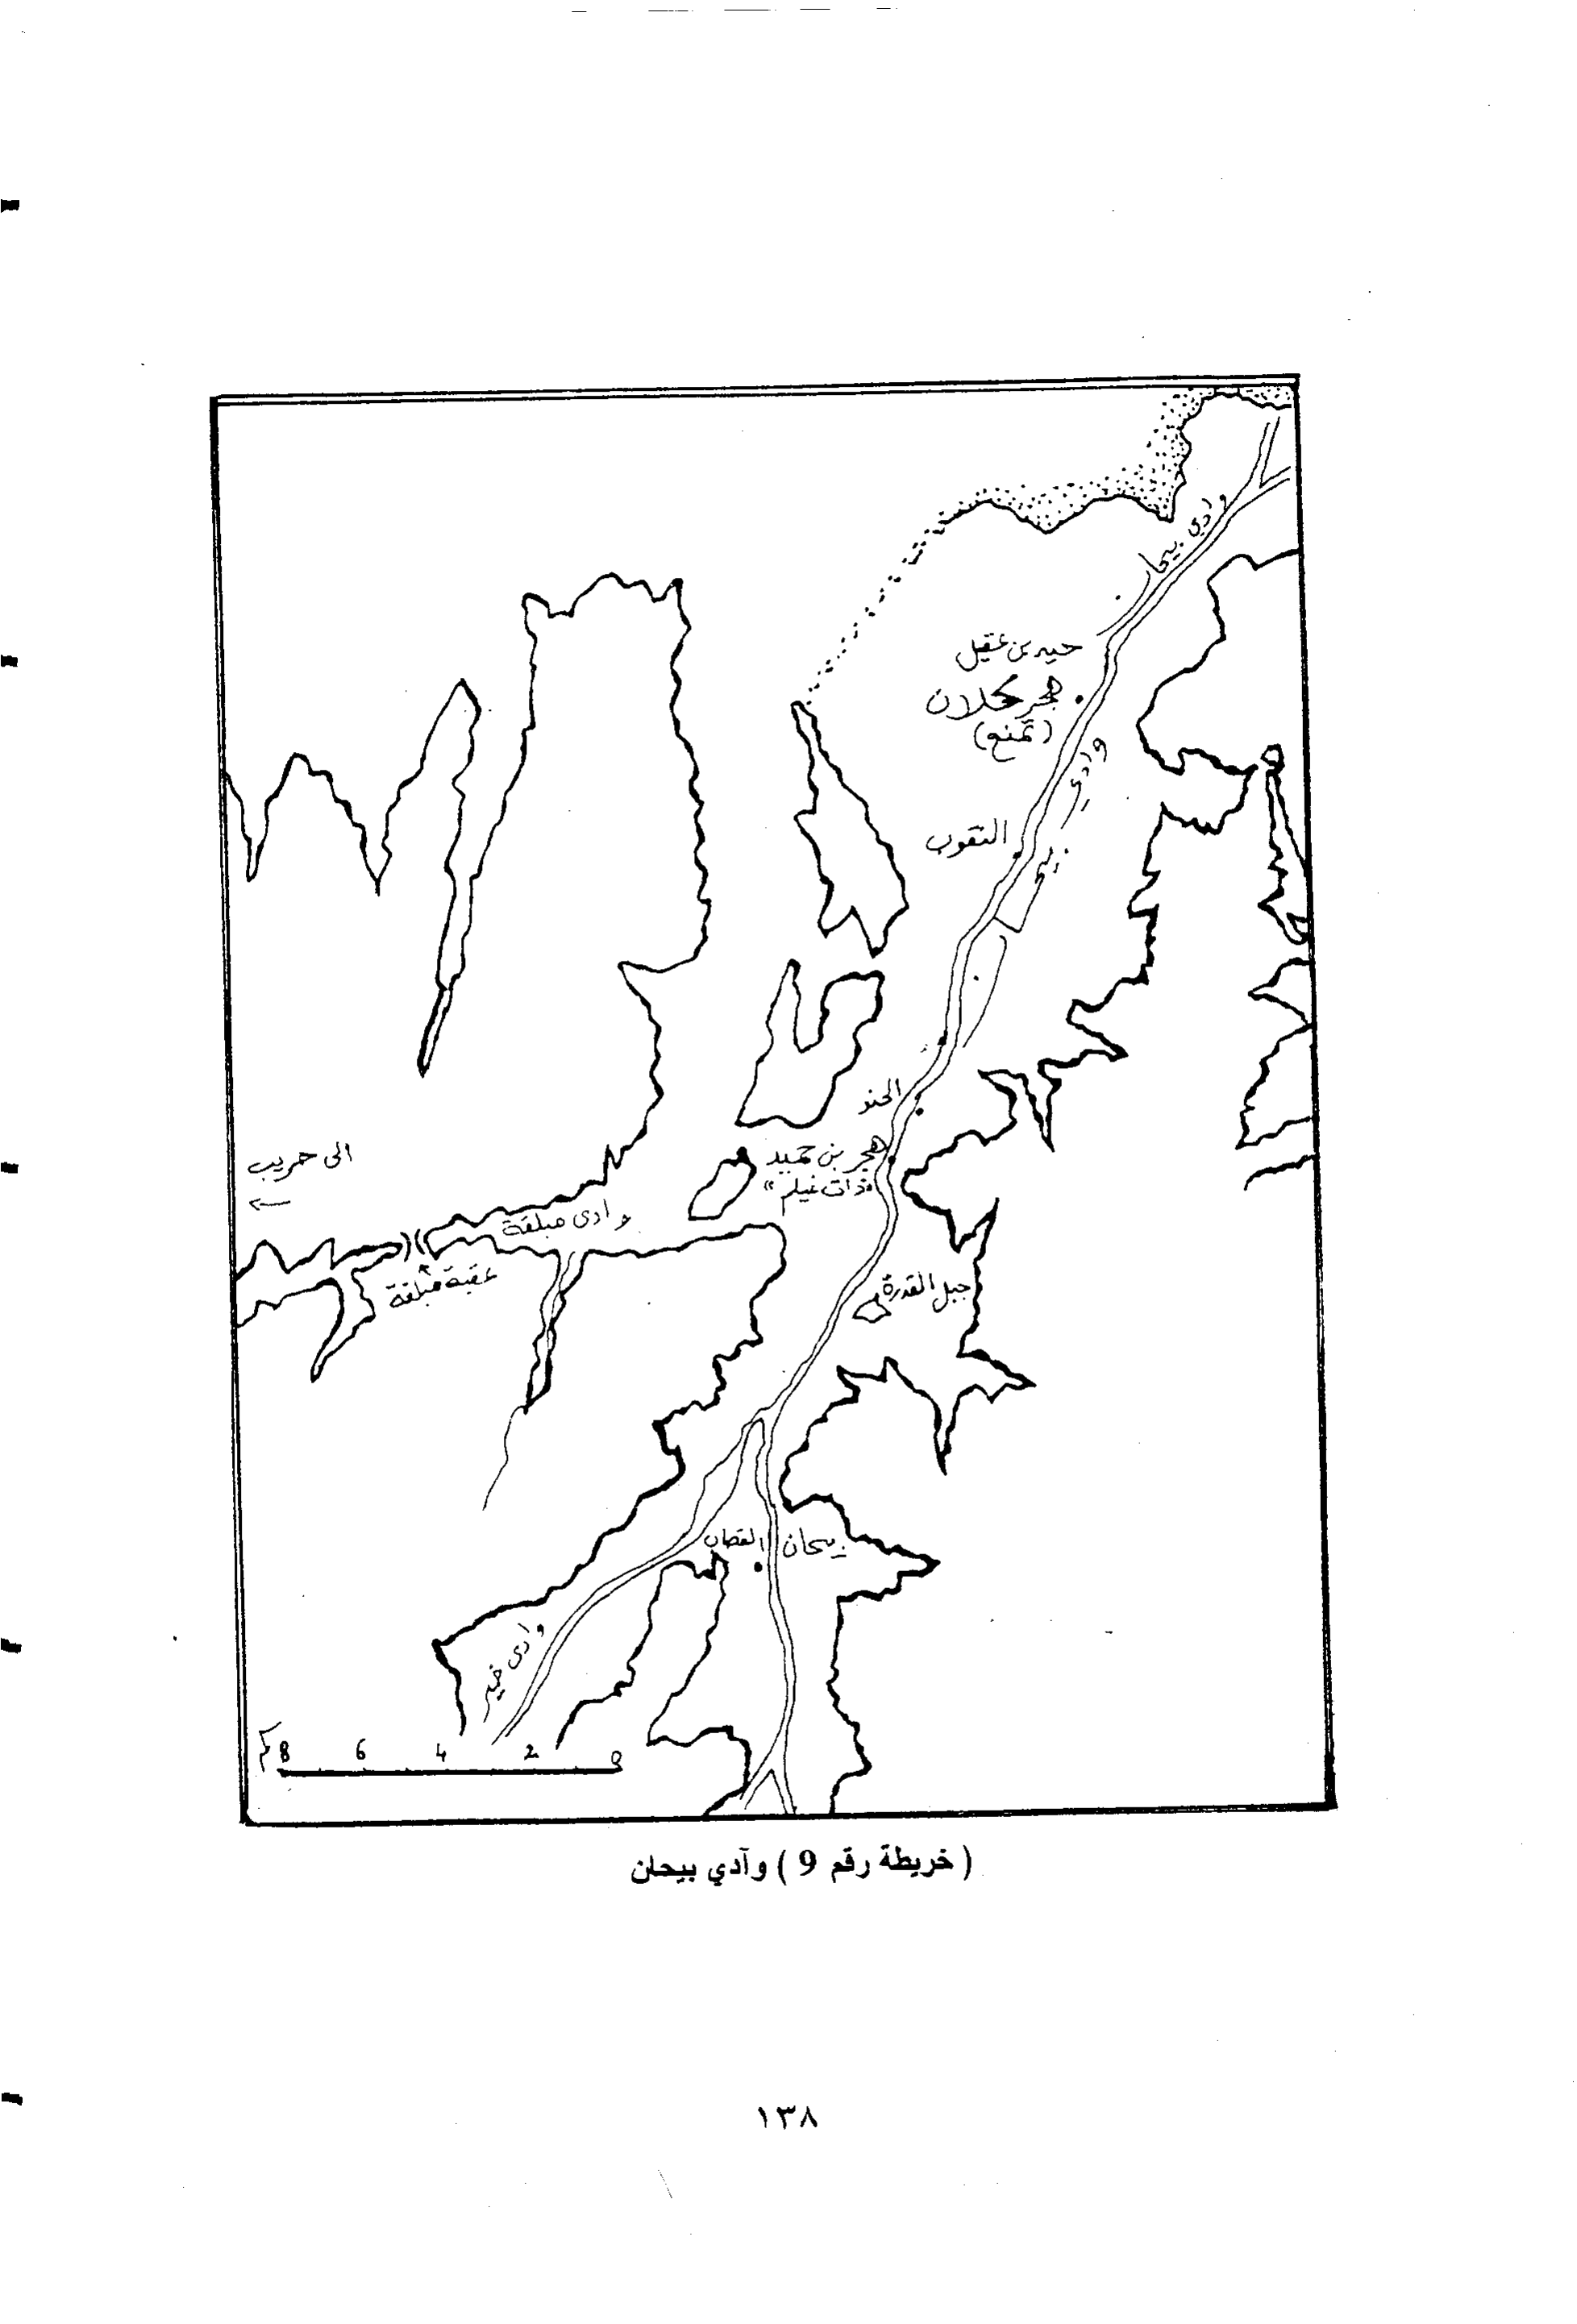 وادي بيحان
حيد بن عقيل
هجر كحلان
(تمنع)
وادي بيحان
النقوب
الحنو
هجر بن حميد
"ذات غيلم"
الى حريب
←
وادى مبلقة
عقبة مبلقة
جبل القدرة
بيحان القصاب
وادى خير
كم 8 6 4 2 0
( خريطة رقم 9 ) وآدي بيحان
١٣٨